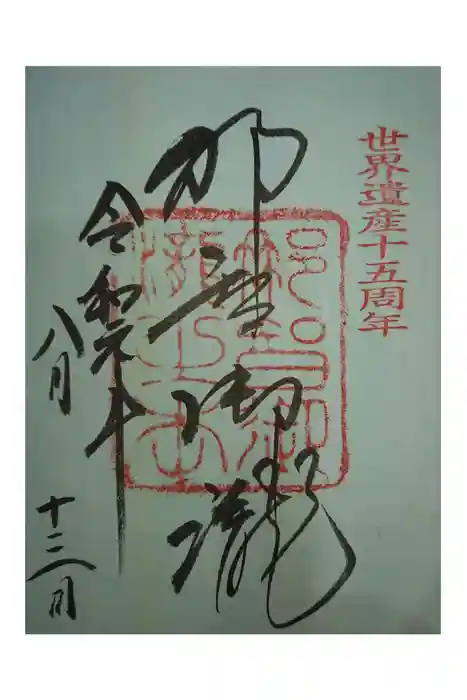 世界遺産十五周年
那智御瀧
令和元年
八月
十三日